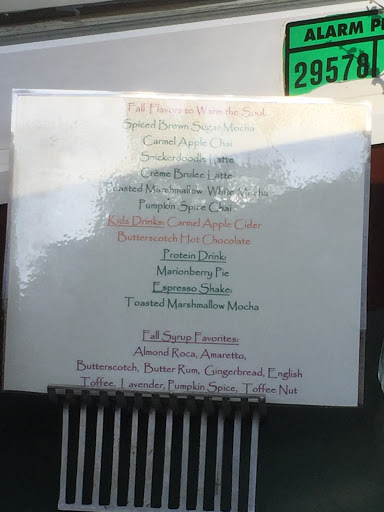 ALARM P
29578
Fall Flavors to Warm the Soul
Spiced Brown Sugar Mocha
Carmel Apple Chai
Snickerdoodle Latte
Crème Brulee Latte
Toasted Marshmallow White Mocha
Pumpkin Spice Chai
Kids Drinks: Carmel Apple Cider
Butterscotch Hot Chocolate
Protein Drink:
Marionberry Pie
Espresso Shake:
Toasted Marshmallow Mocha
Fall Syrup Favorites:
Almond Roca, Amaretto,
Butterscotch, Butter Rum, Gingerbread, English
Toffee, Lavender, Pumpkin Spice, Toffee Nut